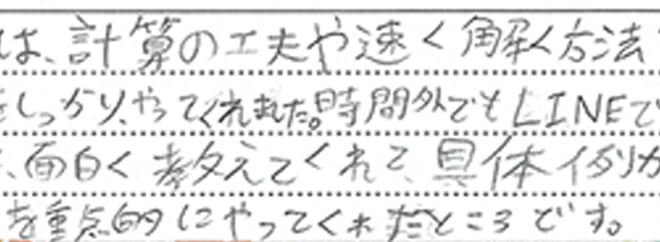 は、計算の工夫や速く解く方法
をしっかり、やってくれました。時間外でもLINEで
、面白く教えてくれて、具体例が
を重点的にやってくれたところです。